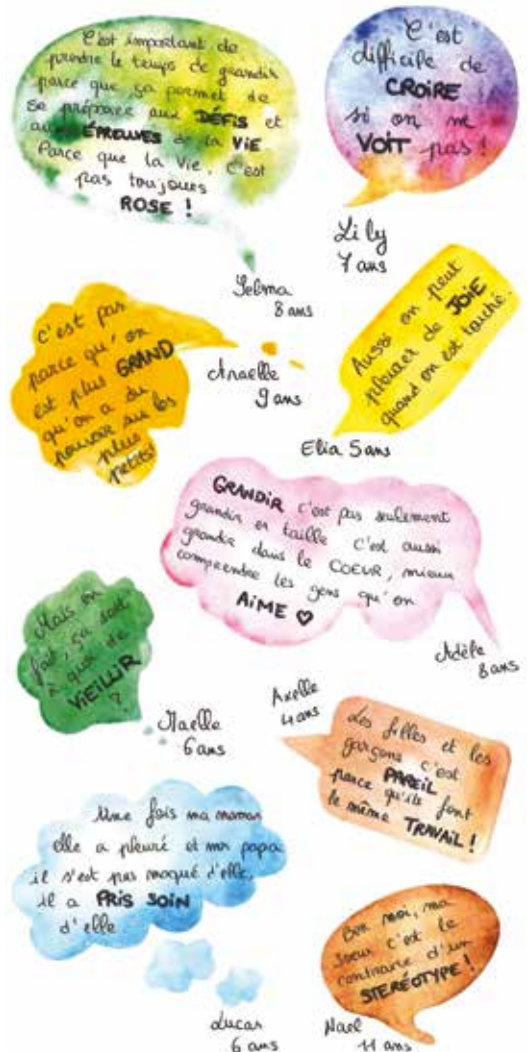 C'est important de
prendre le temps de grandir
parce que ça permet de
se préparer aux DÉFIS et
aux ÉPREUVES de la VIE
Parce que la Vie, c'est
pas toujours
ROSE !
Selma
8 ans
C'est
difficile de
CROIRE
si on ne
VOIT pas !
Lily
7 ans
C'est pas
parce qu'on
est plus GRAND
qu'on a du
pouvoir sur les
plus
petits!
Anaelle
9 ans
Aussi on peut
pleurer de JOIE
quand on est touché.
Elia 5 ans
GRANDIR c'est pas seulement
grandir en taille c'est aussi
grandir dans le COEUR, mieux
comprendre les gens qu'on
AiME ♡
Adèle
8 ans
Mais en
fait, ça sert
à quoi de
VIEILLIR
?
Maelle
6 ans
Axelle
4 ans
Les filles et les
garçons c'est
PAREIL
parce qu'ils font
le même TRAVAIL !
Une fois ma maman
elle a pleuré et mon papa
il s'est pas moqué d'elle,
il a PRIS SOIN
d'elle
Lucas
6 ans
Bon moi, ma
soeur c'est le
contraire d'un
STERÉOTYPE !
Nael
11 ans